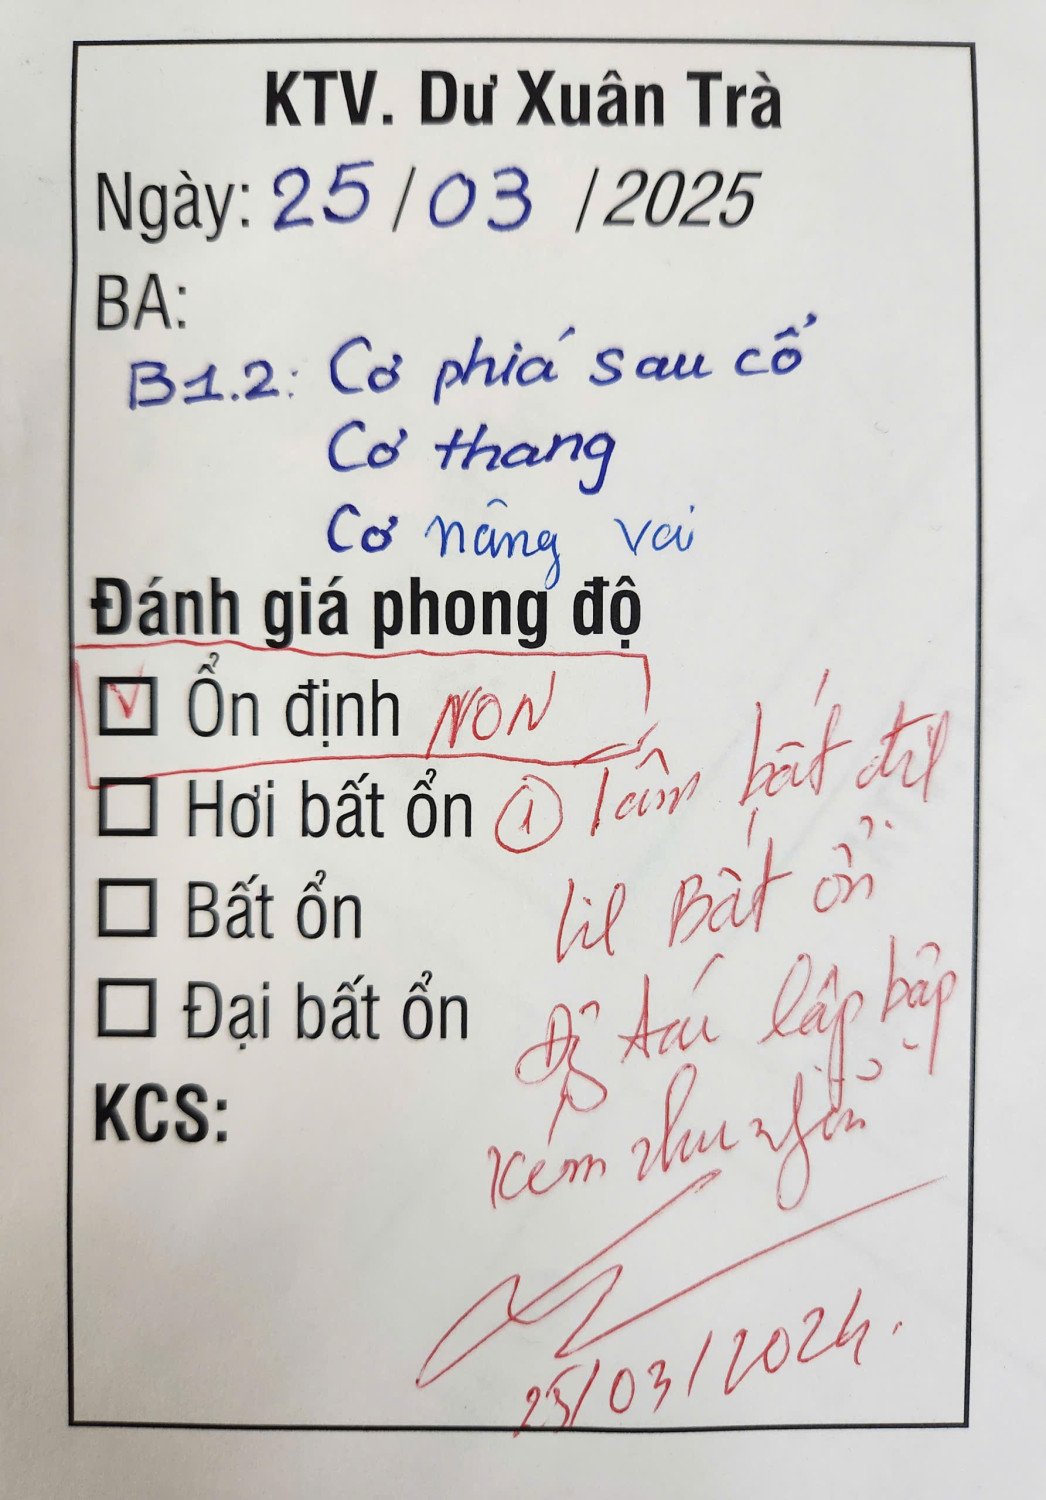 KTV. Dư Xuân Trà
Ngày: 25/03/2025
BA:
B1.2: Cơ phiá sau cổ
Cơ thang
Cơ nâng vai
Đánh giá phong độ
☑ Ổn định NON
☐ Hơi bất ổn ① Tâm bất
☐ Bất ổn Bất ổn
☐ Đại bất ổn lập bập
KCS:
kém
25/03/2024.